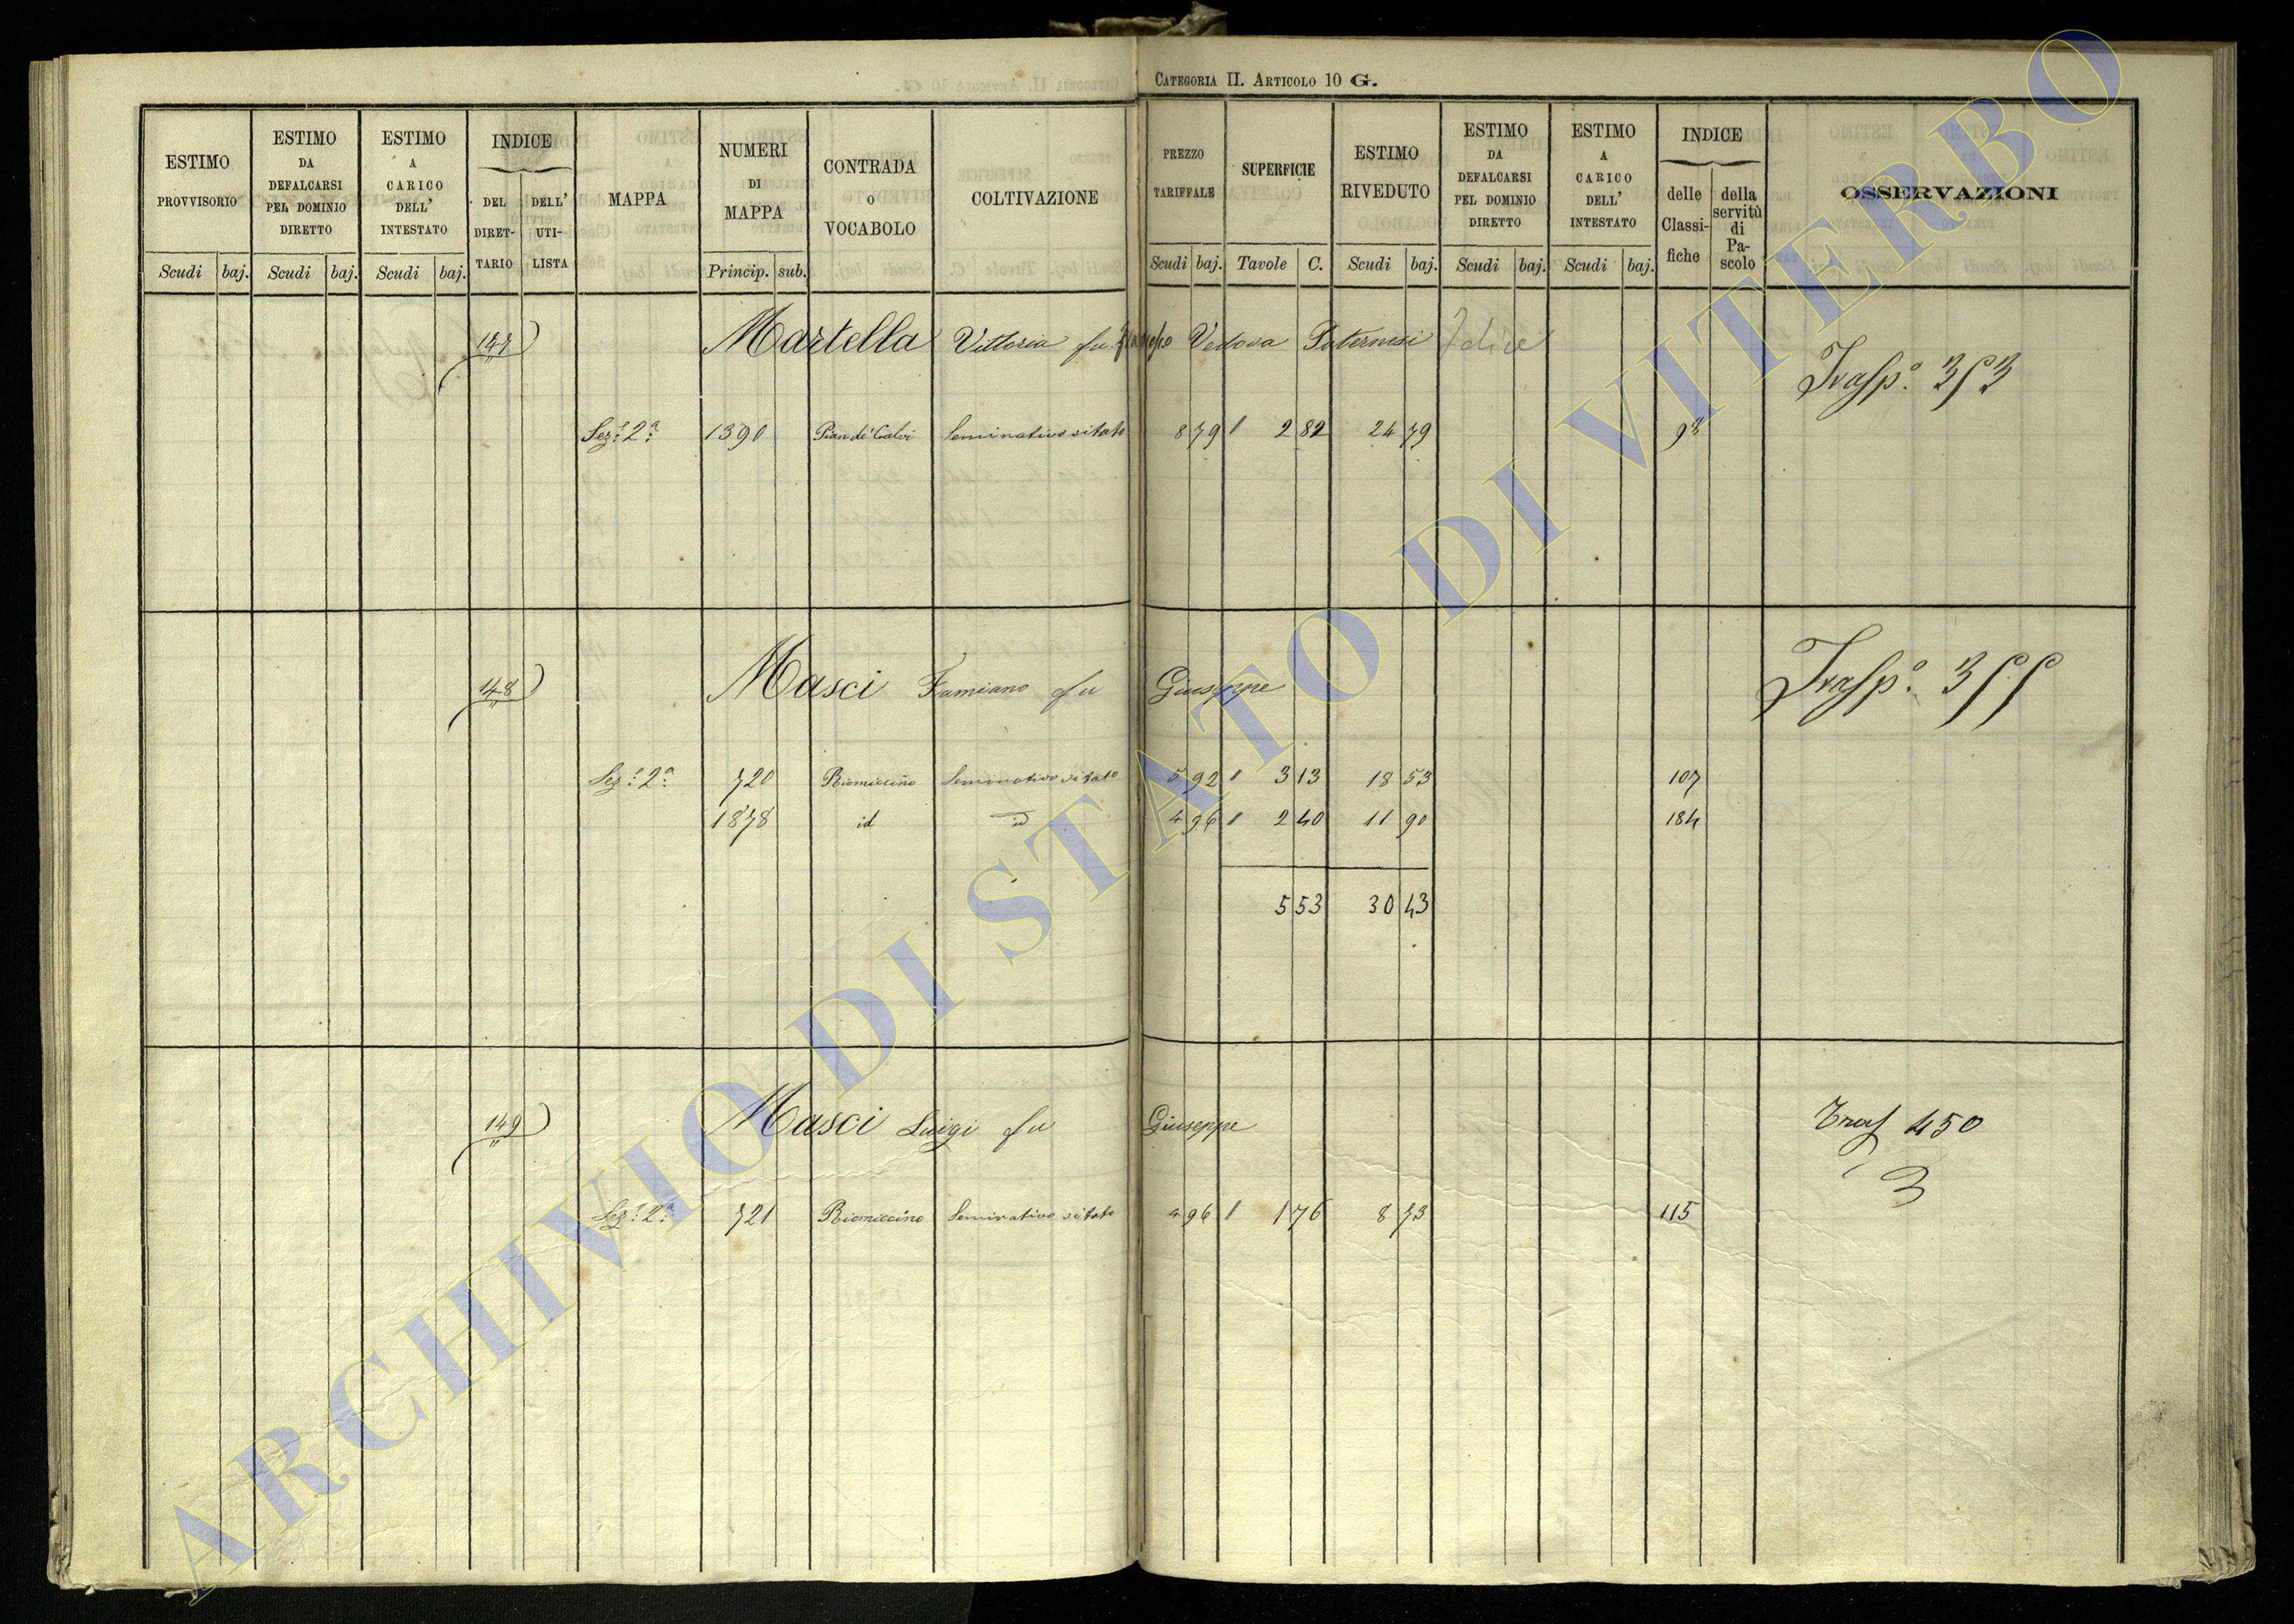 CATEGORIA II. ARTICOLO 10 G.
ESTIMO PROVVISORIO
Scudi baj.
ESTIMO DA DEFALCARSI PEL DOMINIO DIRETTO
Scudi baj.
ESTIMO A CARICO DELL' INTESTATO
Scudi baj.
INDICE
DEL DIRET- TARIO
DELL' UTI- LISTA
MAPPA
NUMERI DI MAPPA
Princip. sub.
CONTRADA O VOCABOLO
COLTIVAZIONE
PREZZO TARIFFALE
Scudi baj.
SUPERFICIE
Tavole C.
ESTIMO RIVEDUTO
Scudi baj.
ESTIMO DA DEFALCARSI PEL DOMINIO DIRETTO
Scudi baj.
ESTIMO A CARICO DELL' INTESTATO
Scudi baj.
INDICE
delle Classi- fiche
della servitù di Pa- scolo
OSSERVAZIONI
147 Martella Vittoria fu Vedova Paternesi Felice
Trasp.º 353
Sez.e 2.a 1390 Pian de' Calvi Seminativo vitato 8 79 1 2 82 24 79 98
148 Masci Famiano fu Giuseppe
Trasp.º 355
Sez.e 2.a 720 Riomiccino Seminativo vitato 5 92 1 3 13 18 53 107
1878 id id 4 96 1 2 40 11 90 184
5 53 30 43
149 Masci Luigi fu Giuseppe
Tras 450
3
Sez.e 2.a 721 Riomiccino Seminativo vitato 4 96 1 1 76 8 73 115
ARCHIVIO DI STATO DI VITERBO